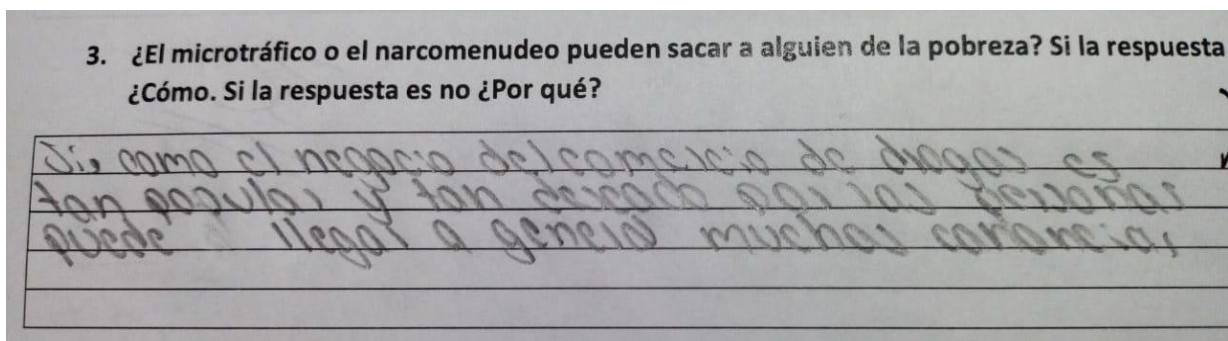 3. ¿El microtráfico o el narcomenudeo pueden sacar a alguien de la pobreza? Si la respuesta
¿Cómo. Si la respuesta es no ¿Por qué?
Si, como el negocio del comercio de drogas es
tan popular y tan deseado por las personas
puede llegar a generar muchas